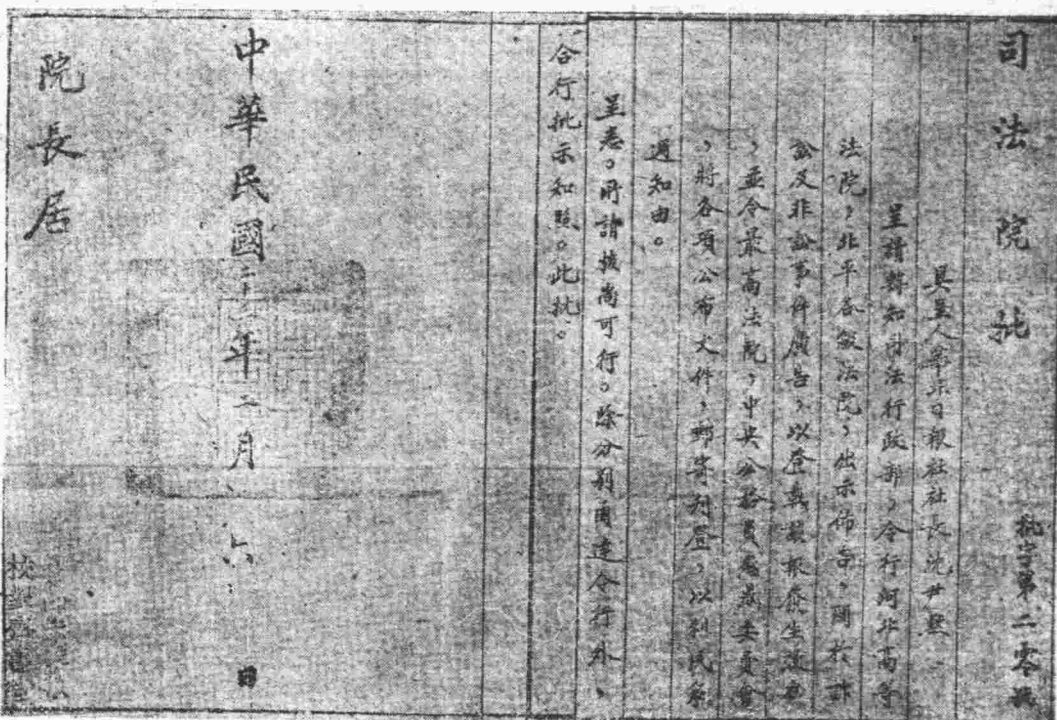 司法院批
批字第二零號
具呈人華北日報社社長沈尹默
呈請轉知司法行政部,令行河北高等
法院,北平各級法院,出示佈告,關於訴
訟及非訟事件廣告,以登載該報發生效力
,並令最高法院,中央公務員懲戒委員會
,將各項公布文件,郵寄刊登,以利民眾
週知由。
呈悉。所請核尚可行。除分別函達令行外,
合行批示知照。此批。
中華民國二十二年二月六日
院長居
校對